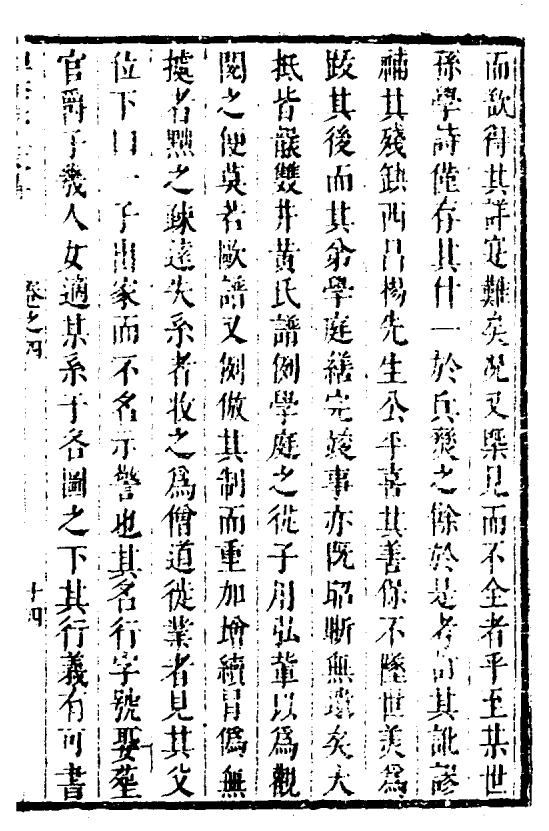 而欲得其詳寔難矣况又槩見而不全者乎至某世
孫學詩僅存其什一於兵燹之餘於是考訂其訛謬
補其殘缺西昌楊先生公平喜其善保不墜世美為
跋其後而其弟學庭繕完竣事亦既昭晰無遺矣大
抵皆嚴雙井黃氏譜例學庭之從子用弘輩以為觀
閱之便莫若歐譜又例倣其制而重加增續冐偽無
據者黜之疎遠失系者收之為僧道從業者見其父
位下曰一子出家而不名示警也其名行字號娶塟
官爵子幾人女適某系于各圖之下其行義有可書
卷之四
十四